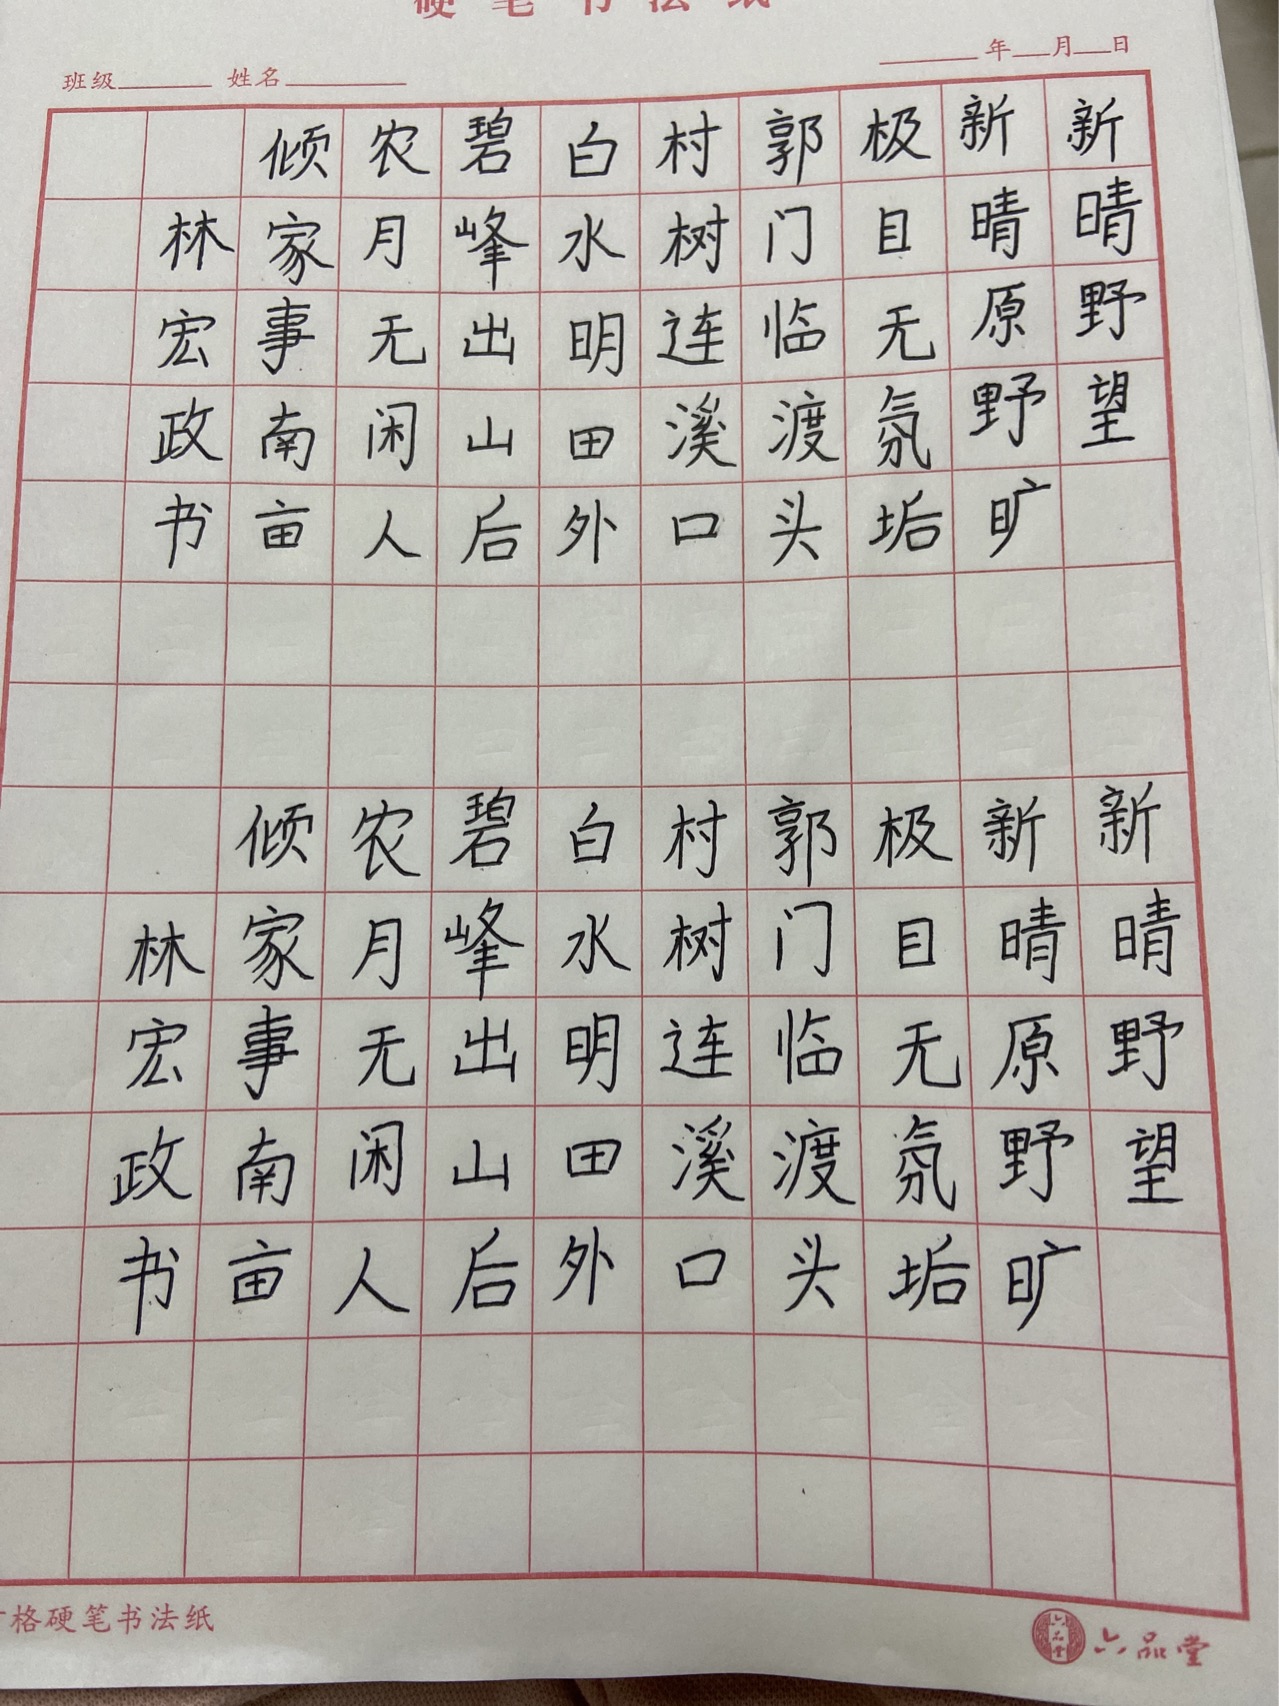 硬笔书法纸
班级 姓名 年 月 日
新晴野望
新晴原野旷
极目无氛垢
郭门临渡头
村树连溪口
白水明田外
碧峰出山后
农月无闲人
倾家事南亩
林宏政书
新晴野望
新晴原野旷
极目无氛垢
郭门临渡头
村树连溪口
白水明田外
碧峰出山后
农月无闲人
倾家事南亩
林宏政书
格硬笔书法纸
六品堂
六品堂